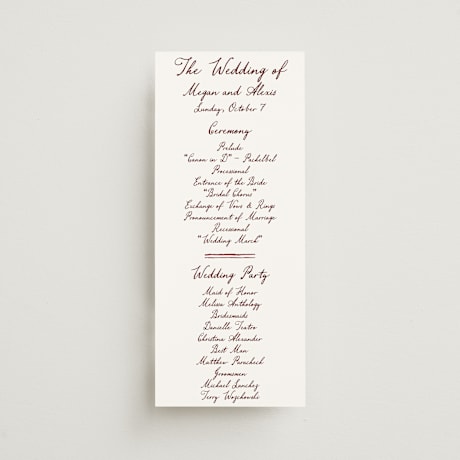 The Wedding of
Megan and Alexis
Sunday, October 7
Ceremony
Prelude
"Canon in D" – Pachelbel
Processional
Entrance of the Bride
"Bridal Chorus"
Exchange of Vows & Rings
Pronouncement of Marriage
Recessional
"Wedding March"
Wedding Party
Maid of Honor
Melissa Anthology
Bridesmaids
Danielle Teatro
Christina Alexander
Best Man
Matthew
Groomsmen
Michael Sanchez
Terry